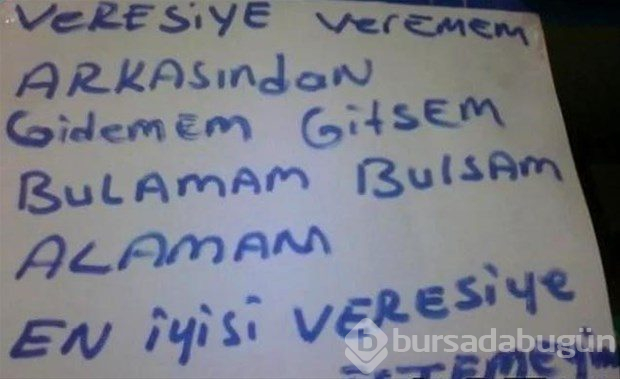 VERESiYE VereMEM
ARKASındaN
GidEMEM GitSEM
BULAMAM BulSAM
ALAMAM
EN iyiSi VERESiye
bursadabugün